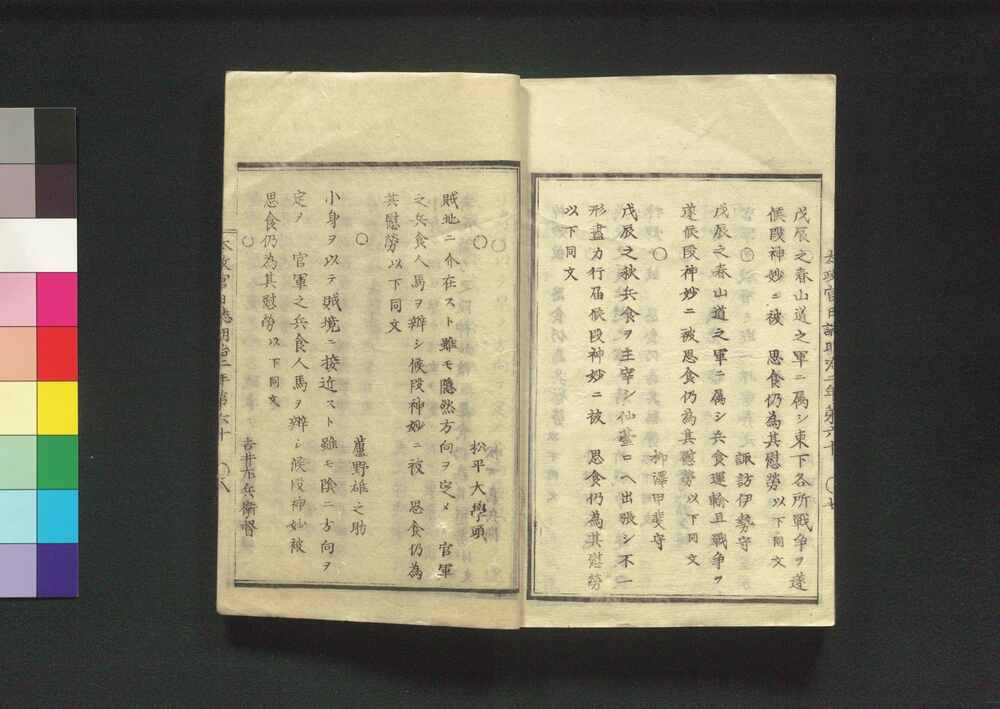 戊辰之春山道之軍ニ属シ東下各所戦争ヲ遂
候段神妙ニ被　思食仍為其慰勞以下同文
○　諏訪伊勢守
戊辰之春山道之軍ニ属シ兵食運輸且戦争ヲ
遂候段神妙ニ被思食仍為其慰勞以下同文
○　柳澤甲斐守
戊辰之秋兵食ヲ主宰シ仙臺口ヘ出張シ不一
形盡力行届候段神妙ニ被　思食仍為其慰勞
以下同文
○　松平大學頭
賊地ニ介在スト雖モ隠然方向ヲ定メ　官軍
之兵食人馬ヲ辨シ候段神妙ニ被　思食仍為
其慰勞以下同文
○　蘆野雄之助
小身ヲ以テ賊境ニ接近スト雖モ陰ニ方向ヲ
定メ　官軍之兵食人馬ヲ辨シ候段神妙被
思食仍為其慰勞以下同文
吉井左兵衛督
太政官日誌明治二年第六十